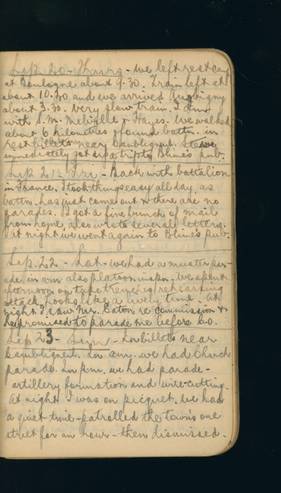 Sep. 20 - Thurs - We left rest camp
at Boulogne about 9.30. Train left at
about 10.30 and we arrived Aubigny
about 3.30. Very slow train. I am
with S.M. Melville + Hayes. We walked
about 6 kilometres + found battn. in
rest billets near Cambligneul.
immediately got dry at Blins's pub.
Sep. 21 - Fri - Back with battalion
in France. I took things easy all day as
battn. has just come out + there are no
parades. I got a fine bunch of mail
from home, also wrote several letters.
At night we went again to Blins's pub.
Sep. 22 - Sat - We had a muster par-
ade in a.m. also platoon inspn. We spent
afternoon on tape trenches rehearsing
attack, looks like a lively time. At
night I saw Mr. Eaton re commission +
he promised to parade me before C.O.
Sep. 23 - Sun - In billets near
Cambligneul. In a.m. we had Church
parade. In p.m. we had parade -
artillery formation and wire-cutting.
At night I was on picquet. We had
a quiet time - patrolled the town's one
street for an hour - then dismissed.